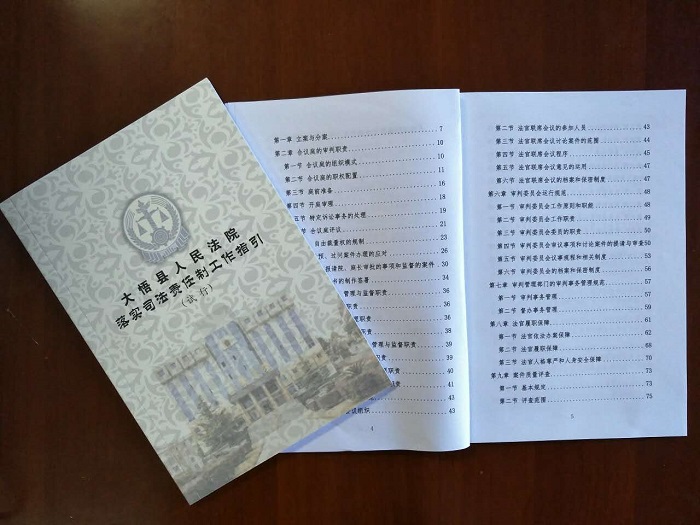 大悟县人民法院
落实司法责任制工作指引
（试行）
第一章 立案与分案 7
第二章 合议庭的审判职责 10
第一节 合议庭的组织模式 10
第二节 合议庭的职权配置 11
第三节 庭前准备 16
第四节 开庭审理 18
五节 特定诉讼事务的处理 19
合议庭评议 21
自由裁量权的规制 23
预、过问案件办理的应对 26
报请院、庭长审批的事项和监督的案件
书的制作签署 30
管理与监督职责 34
职责 34
督职责 36
管理与监督职责 36
39
职责 40
41
43
组织 43
4
第二节 法官联席会议的参加人员 43
第三节 法官联席会议讨论案件的范围 44
第四节 法官联席会议程序 45
第五节 法官联席会议意见的运用 47
第六节 法官联席会议的档案和保密制度 47
第六章 审判委员会运行规范 48
第一节 审判委员会工作原则和职能 48
第二节 审判委员会工作职责 49
第三节 审判委员会委员的职责 50
第四节 审判委员会审议事项和讨论案件的提请与审查50
第五节 审判委员会议事规程和相关制度 53
第六节 审判委员会的档案和保密制度 56
第七章 审判管理部门的审判事务管理规范 57
第一节 审判事务管理 57
第二节 督办事务管理 59
第八章 法官履职保障 61
第一节 法官依法办案保障 62
第二节 法官履职保障 68
第三节 法官人格尊严和人身安全保障 70
第九章 案件质量评查 73
第一节 基本规定 73
第二节 评查范围 75
5